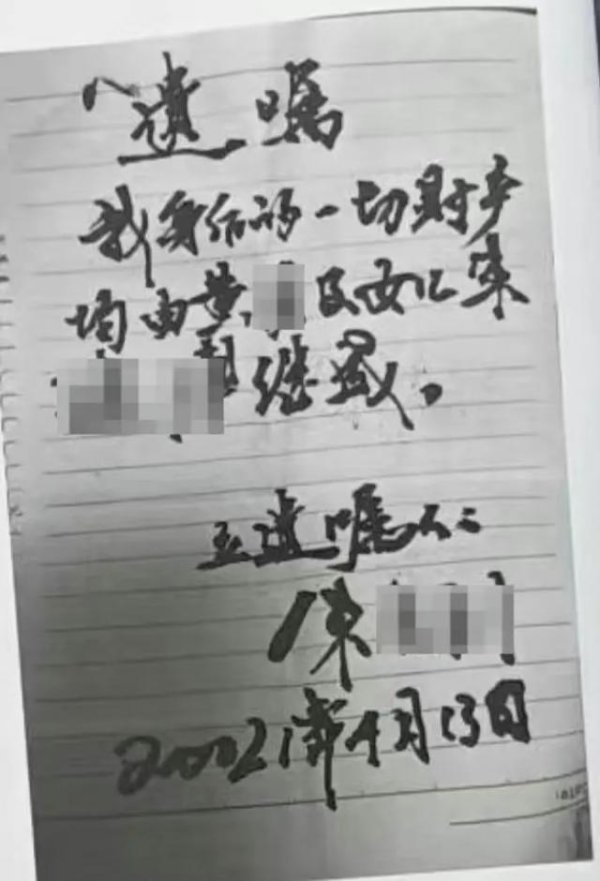 遗嘱
我身后的一切财产
均由黄 及女儿陈
继承。
立遗嘱人:
陈
20021年4月13日